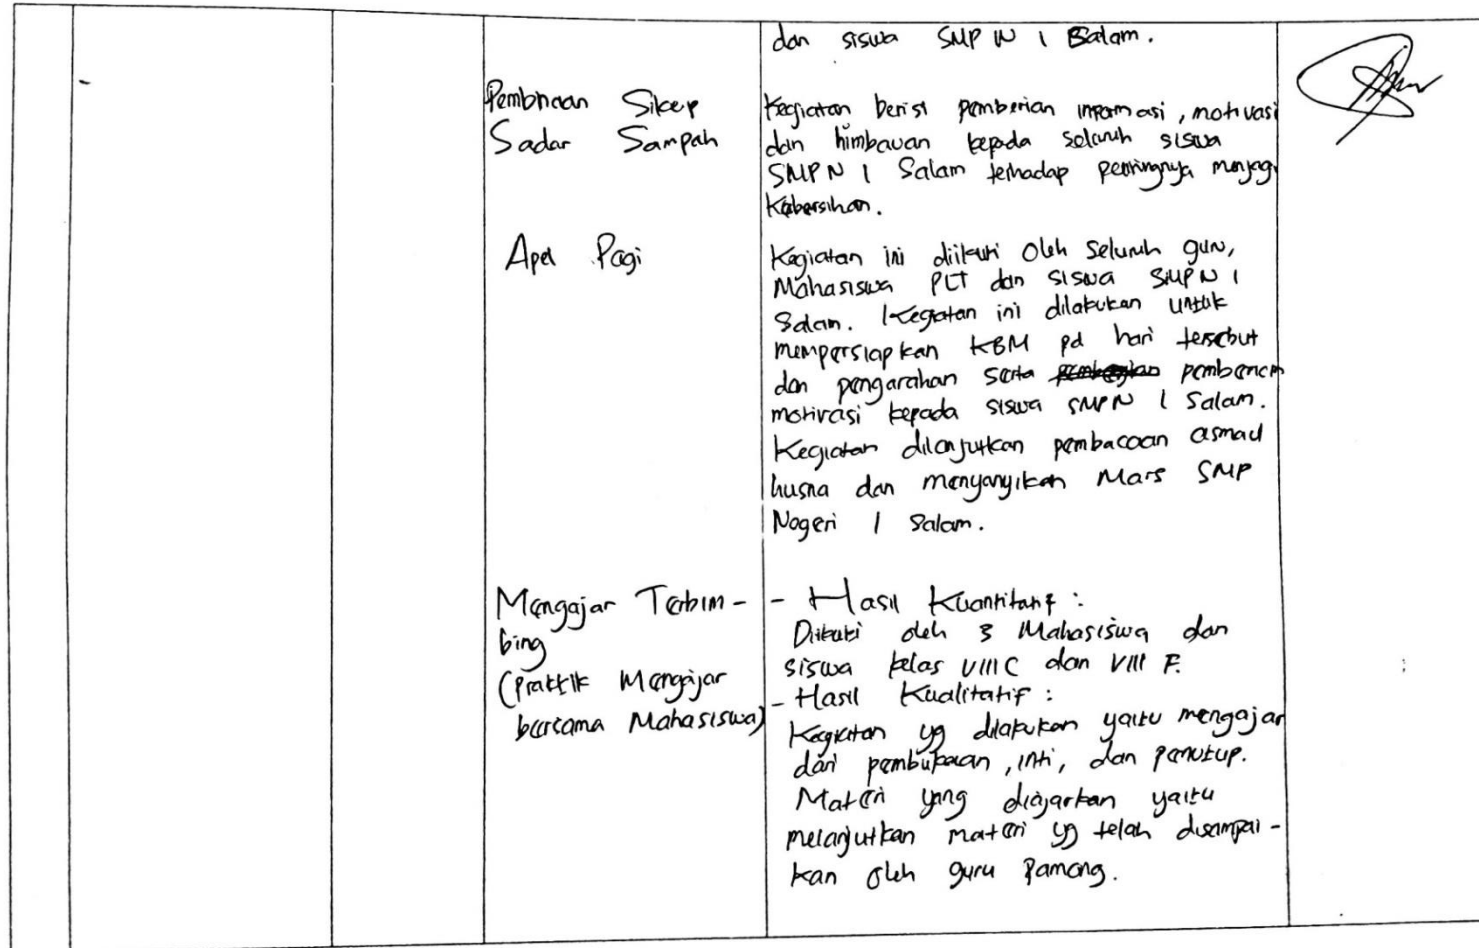 dan siswa SMP N 1 Salam.
-
Pembinaan Sikap
Sadar Sampah
Kegiatan berisi pemberian informasi, motivasi
dan himbauan kepada seluruh siswa
SMP N 1 Salam terhadap pentingnya menjaga
Kebersihan.
Apel Pagi
Kegiatan ini diikuti oleh seluruh guru,
Mahasiswa PLT dan siswa SMP N 1
Salam. Kegiatan ini dilakukan untuk
mempersiapkan KBM pd hari tersebut
dan pengarahan serta pemberian
motivasi kepada siswa SMP N 1 Salam.
Kegiatan dilanjutkan pembacaan asmaul
husna dan menyanyikan Mars SMP
Negeri 1 Salam.
Mengajar Terbim-
bing
(Praktik Mengajar
bersama Mahasiswa)
- Hasil Kuantitatif :
Diikuti oleh 3 Mahasiswa dan
siswa kelas VIII C dan VIII F.
- Hasil Kualitatif :
Kegiatan yg dilakukan yaitu mengajar
dari pembukaan, inti, dan penutup.
Materi yang diajarkan yaitu
melanjutkan materi yg telah disampai-
kan oleh guru Pamong.